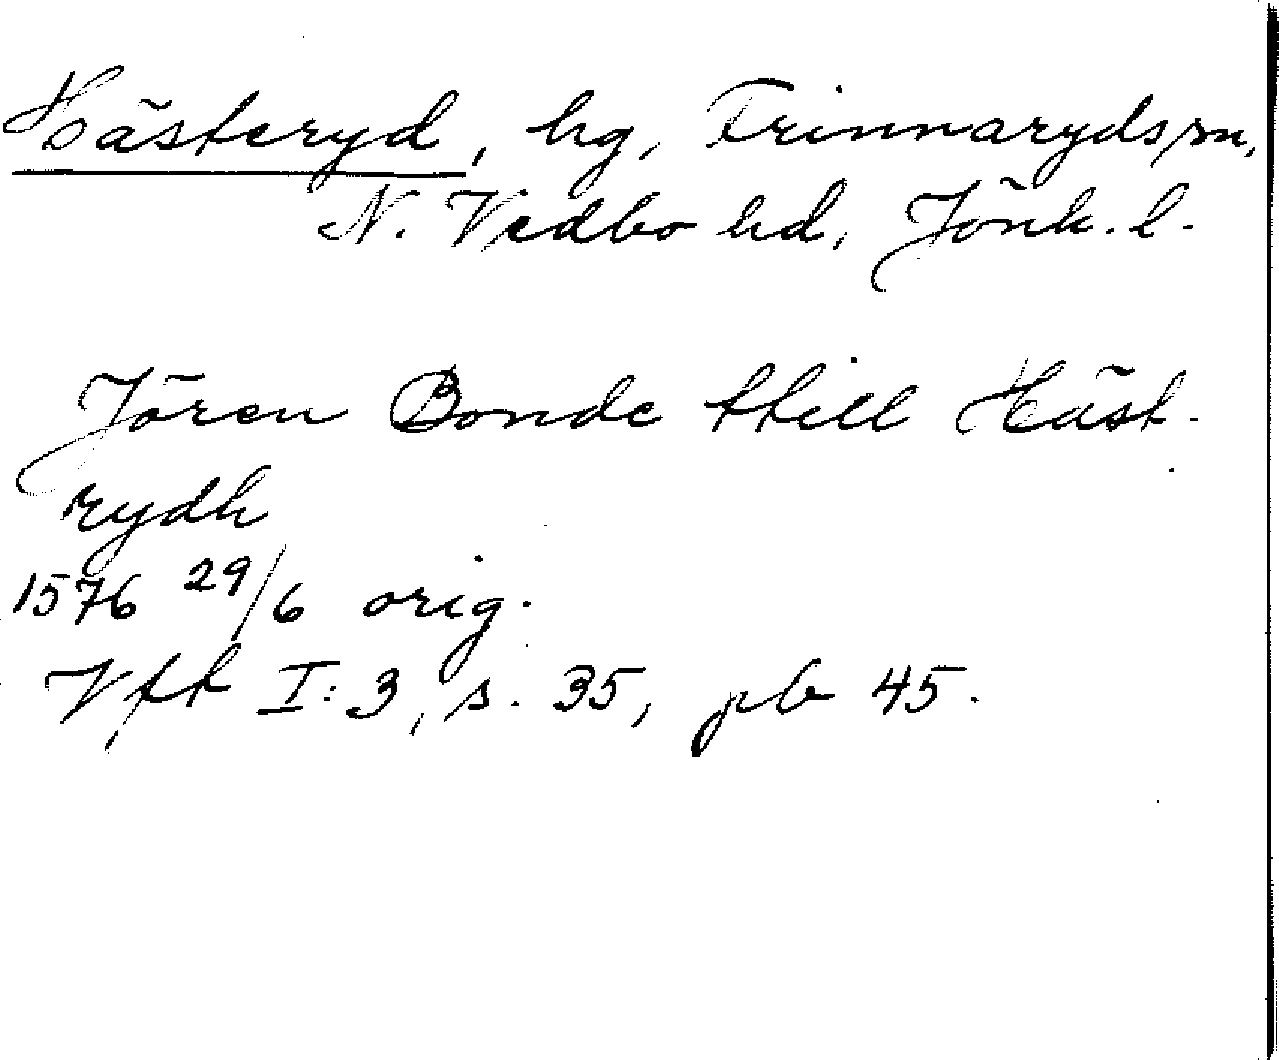 Hästeryd, hg, Frinnaryds sn,
N. Vedbo hd, Jönk. l.
Jören Bonde ttill Häst-
rydh
1576 29/6 orig.
Vfk I:3, s. 35, pb 45.